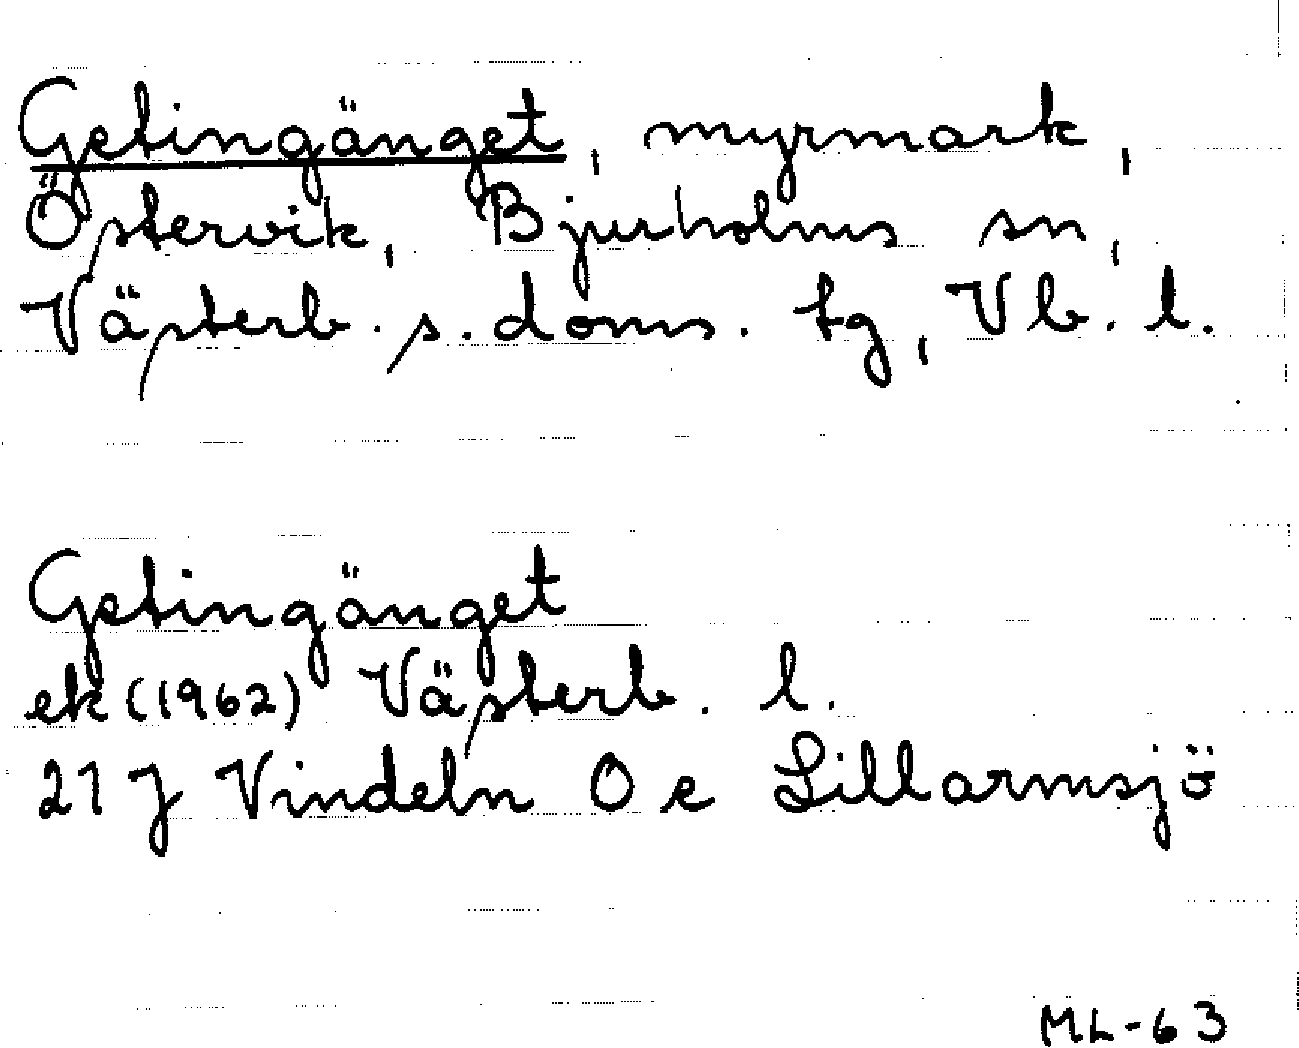 Getingänget, myrmark,
Östervik, Bjurholms sn,
Västerb. s. doms. tg, Vb. l.
Getingänget
ek (1962) Västerb. l.
21 J Vindeln O e Lillarmsjö
ML-63